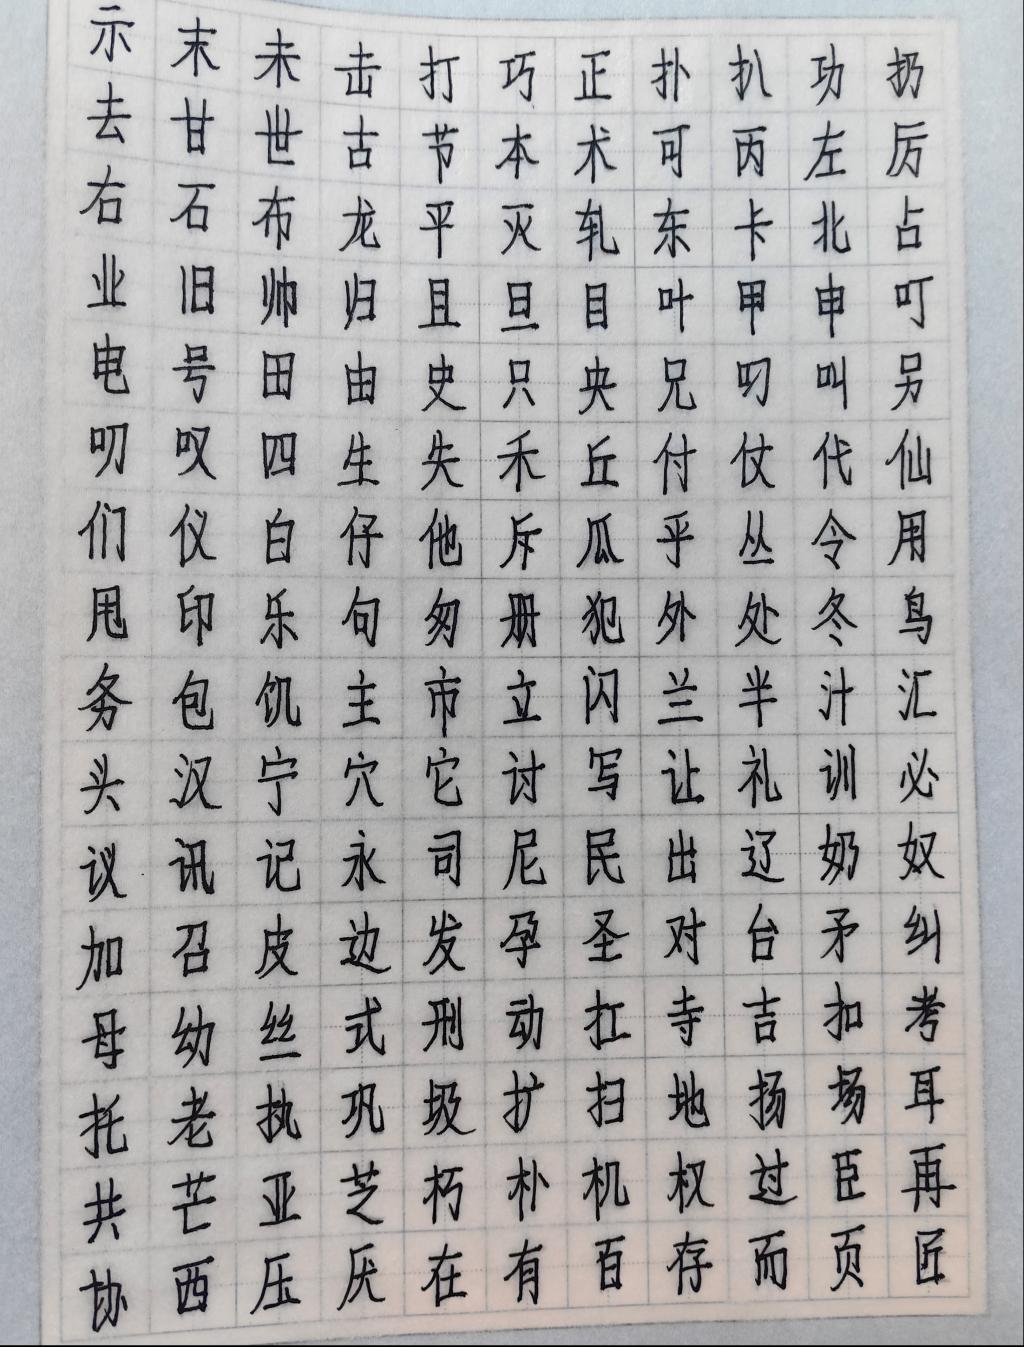 示末未击打巧正扑扒功扔
去甘世古节本术可丙左厉
右石布龙平灭轧东卡北占
业旧帅归且旦目叶甲申叮
电号田由史只央兄叼叫另
叨叹四生失禾丘付仗代仙
们仪白仔他斥瓜乎丛令用
甩印乐句匆册犯外处冬鸟
务包饥主市立闪兰半汁汇
头汉宁穴它讨写让礼训必
议讯记永司尼民出辽奶奴
加召皮边发孕圣对台矛纠
母幼丝式刑动扛寺吉扣考
托老执巩圾扩扫地扬场耳
共芒亚芝朽朴机权过臣再
协西压厌在有百存而页匠